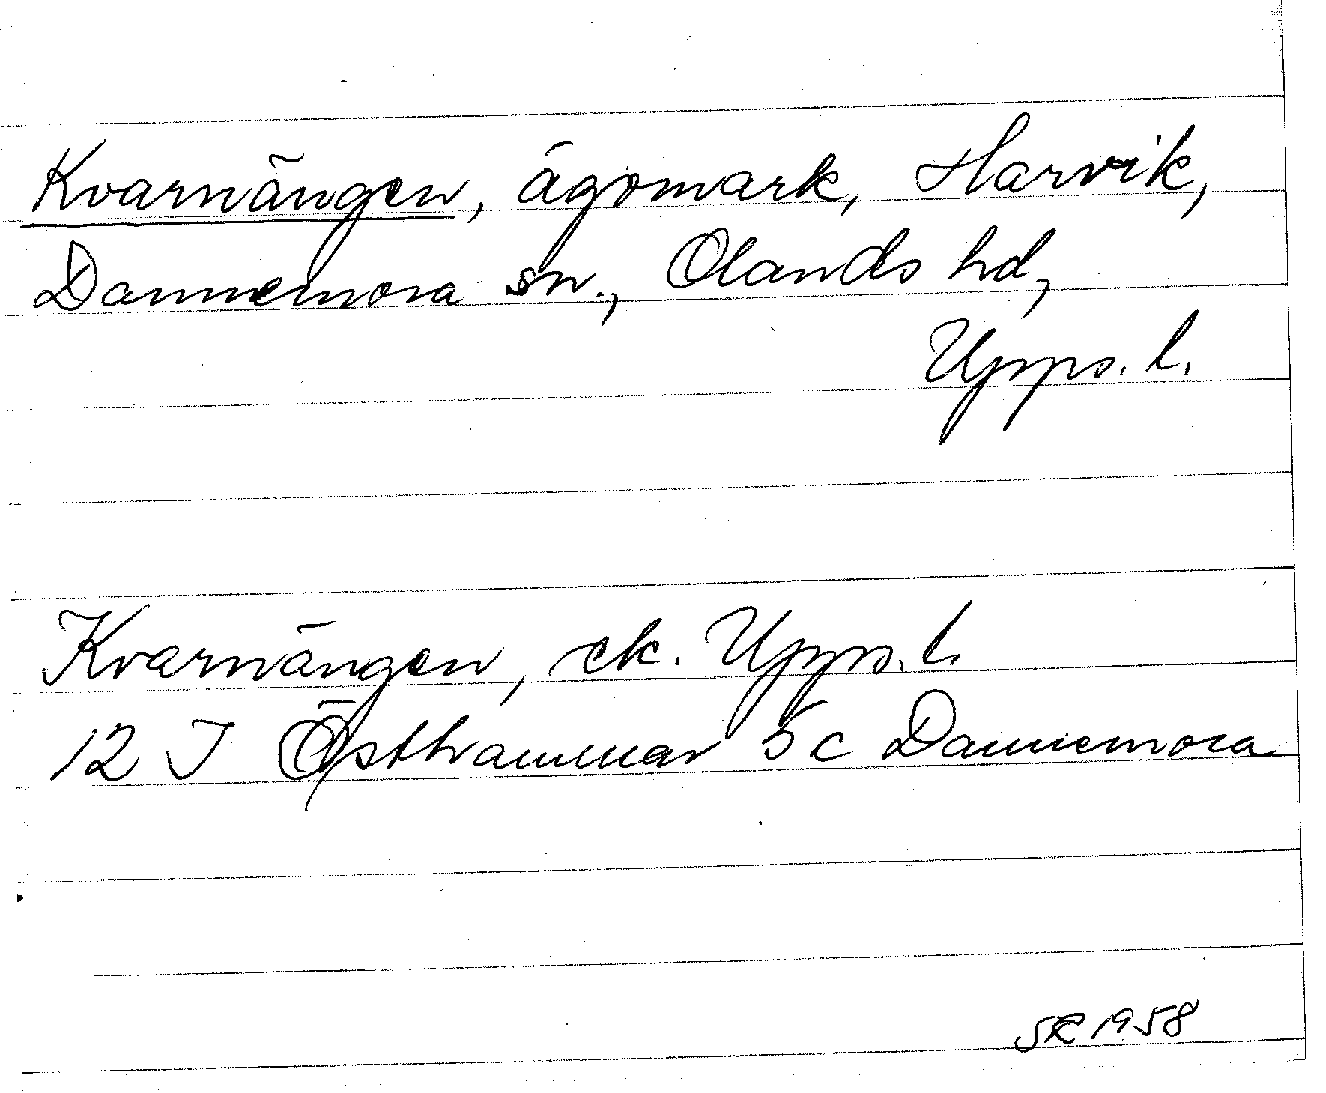 Kvarnängen, ägomark, Harvik,
Dannemora sn., Olands hd,
Upps. l.
Kvarnängen, ek. Upps. l.
12 I Östhammar 5 c Dannemora
SR 1958